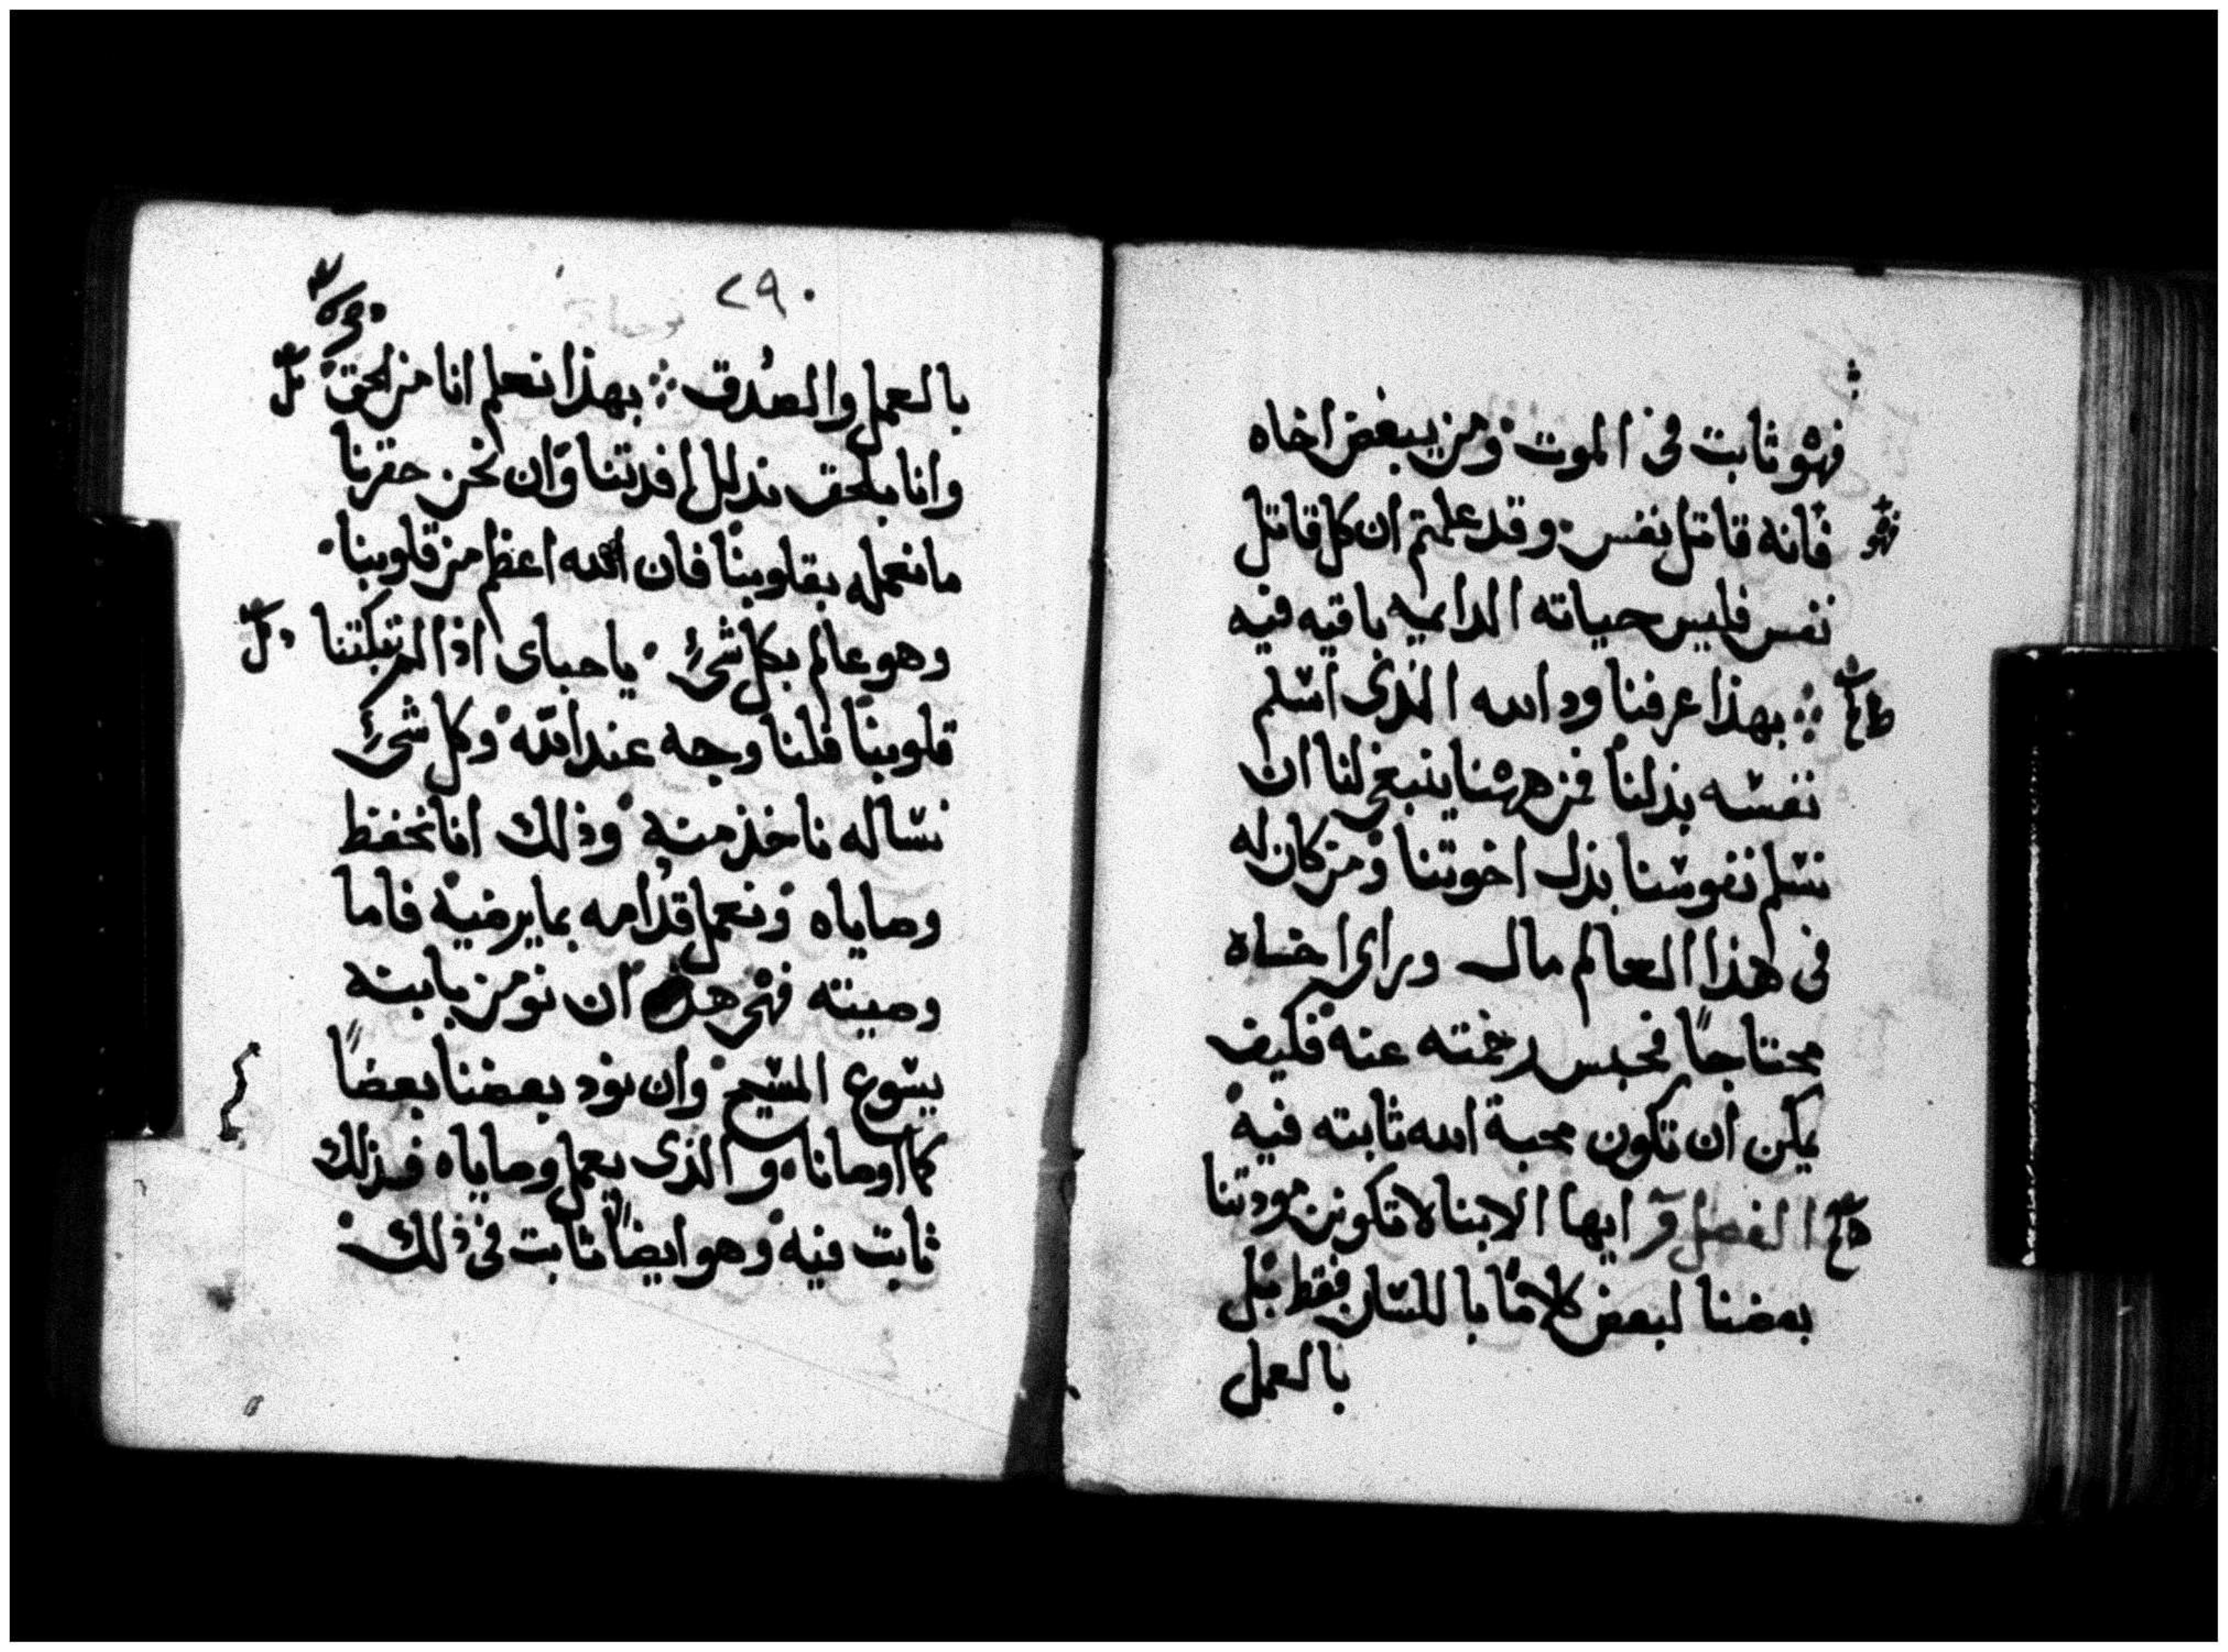 فهو ثابت في الموت ومن يبغض اخاه
فانه قاتل نفس وقد علمتم ان كل قاتل
نفس فليس حياته الدايميه باقيه فيه
بهذا عرفنا ود الله الذى اسلم
نفسه بذلنا فمن ههنا ينبغى لنا ان
نسلم نفوسنا بذل اخوتنا ومن كان له
في هذا العالم مال وراى اخاه
محتاجاً فحبس رحمته عنه فكيف
يمكن ان تكون محبة الله ثابته فيه
الفصل ايها الابنا لا تكونن مودتنا
بعضنا لبعض كلاما باللسان فقط بل
بالعمل
٢٩٠
بالعمل والصدق بهذا نعلم انا من الحق
وانا بلحق ندلل افدتنا وان نحن حقرنا
ما نعمله بقلوبنا فان الله اعظم من قلوبنا
وهو عالم بكل شئ ياحباى اذا لم تبكتنا
قلوبنا فلنا وجه عند الله وكل شئ
نساله ناخذ منه وذلك انا نحفظ
وصاياه ونعمل قدامه بما يرضيه فاما
وصيته فهى هذه ان نومن بابنه
يسوع المسيح وان نود بعضنا بعضاً
كما اوصانا والذى يعمل وصاياه فذلك
ثابت فيه وهو ايضاً ثابت فى ذلك